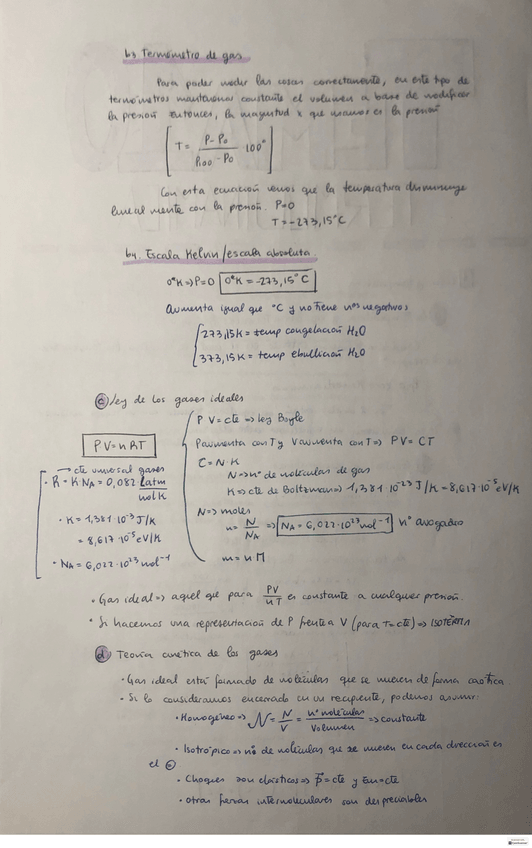 b3 Termómetro de gas
Para poder medir las cosas correctamente, en este tipo de
termómetros mantenemos constante el volumen a base de modificar
la presión. Entonces, la magnitud x que usamos es la presión
[T = P - P₀ / P₁₀₀ - P₀ · 100°]
Con esta ecuación vemos que la temperatura disminuye
linealmente con la presión. P=0
T=-273,15°C
b4. Escala Kelvin/escala absoluta.
0°K => P=0 0°K = -273,15°C
Aumenta igual que °C y no tiene nos negativos
273,15K = temp congelación H₂O
373,15K = temp ebullición H₂O
c) ley de los gases ideales
PV = cte => ley Boyle
PV = nRT
P aumenta con T y V aumenta con T => PV = CT
C = N·K
→ cte universal gases
N => nº de moléculas de gas
· R = K·NA = 0,082 latm/molK
K => cte de Boltzman => 1,381·10⁻²³ J/K = 8,617·10⁻⁵ eV/K
N => moles
· K = 1,381·10⁻³ J/K
n = N/NA => NA = 6,022·10²³ mol⁻¹ nº avogadro
= 8,617·10⁻⁵ eV/K
· NA = 6,022·10²³ mol⁻¹
m = n M
· Gas ideal => aquel que para PV/nT es constante a cualquier presión.
· Si hacemos una representación de P frente a V (para T=cte) => ISOTERMA
d) Teoría cinética de los gases
· Gas ideal está formado de moléculas que se mueven de forma caótica.
· Si lo consideramos encerrado en un recipiente, podemos asumir:
· Homogéneo => N = N/V = nº moléculas/Volumen => constante
· Isotrópico => nº de moléculas que se mueven en cada dirección es
el =
· Choques son elásticos => p = cte y Em = cte
· otras fuerzas intermoleculares son despreciables